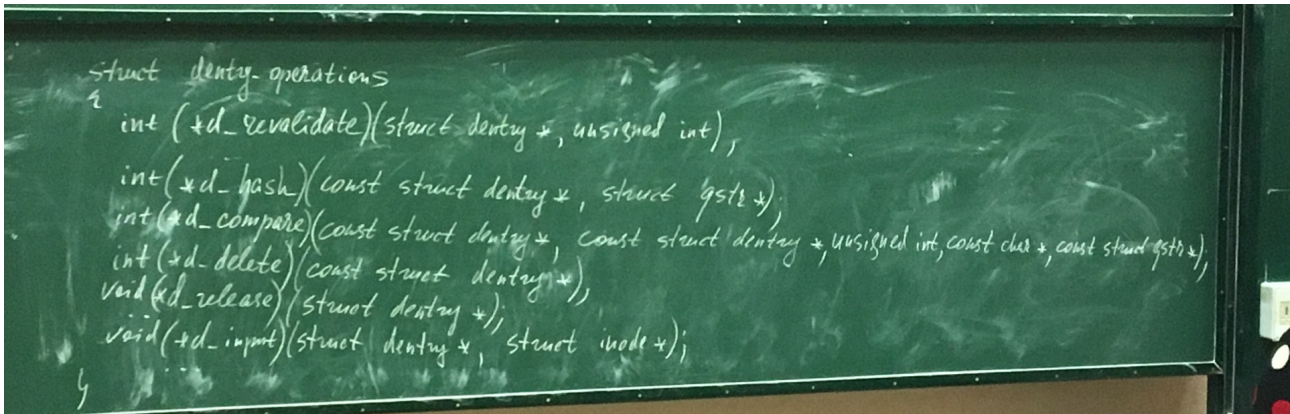 struct denty_operations
{
int (*d_revalidate)(struct dentry *, unsigned int);
int (*d_hash)(const struct dentry *, struct qstr *);
int (*d_compare)(const struct dentry *, const struct dentry *, unsigned int, const char *, const struct qstr *);
int (*d_delete)(const struct dentry *);
void (*d_release)(struct dentry *);
void (*d_input)(struct dentry *, struct inode *);
}